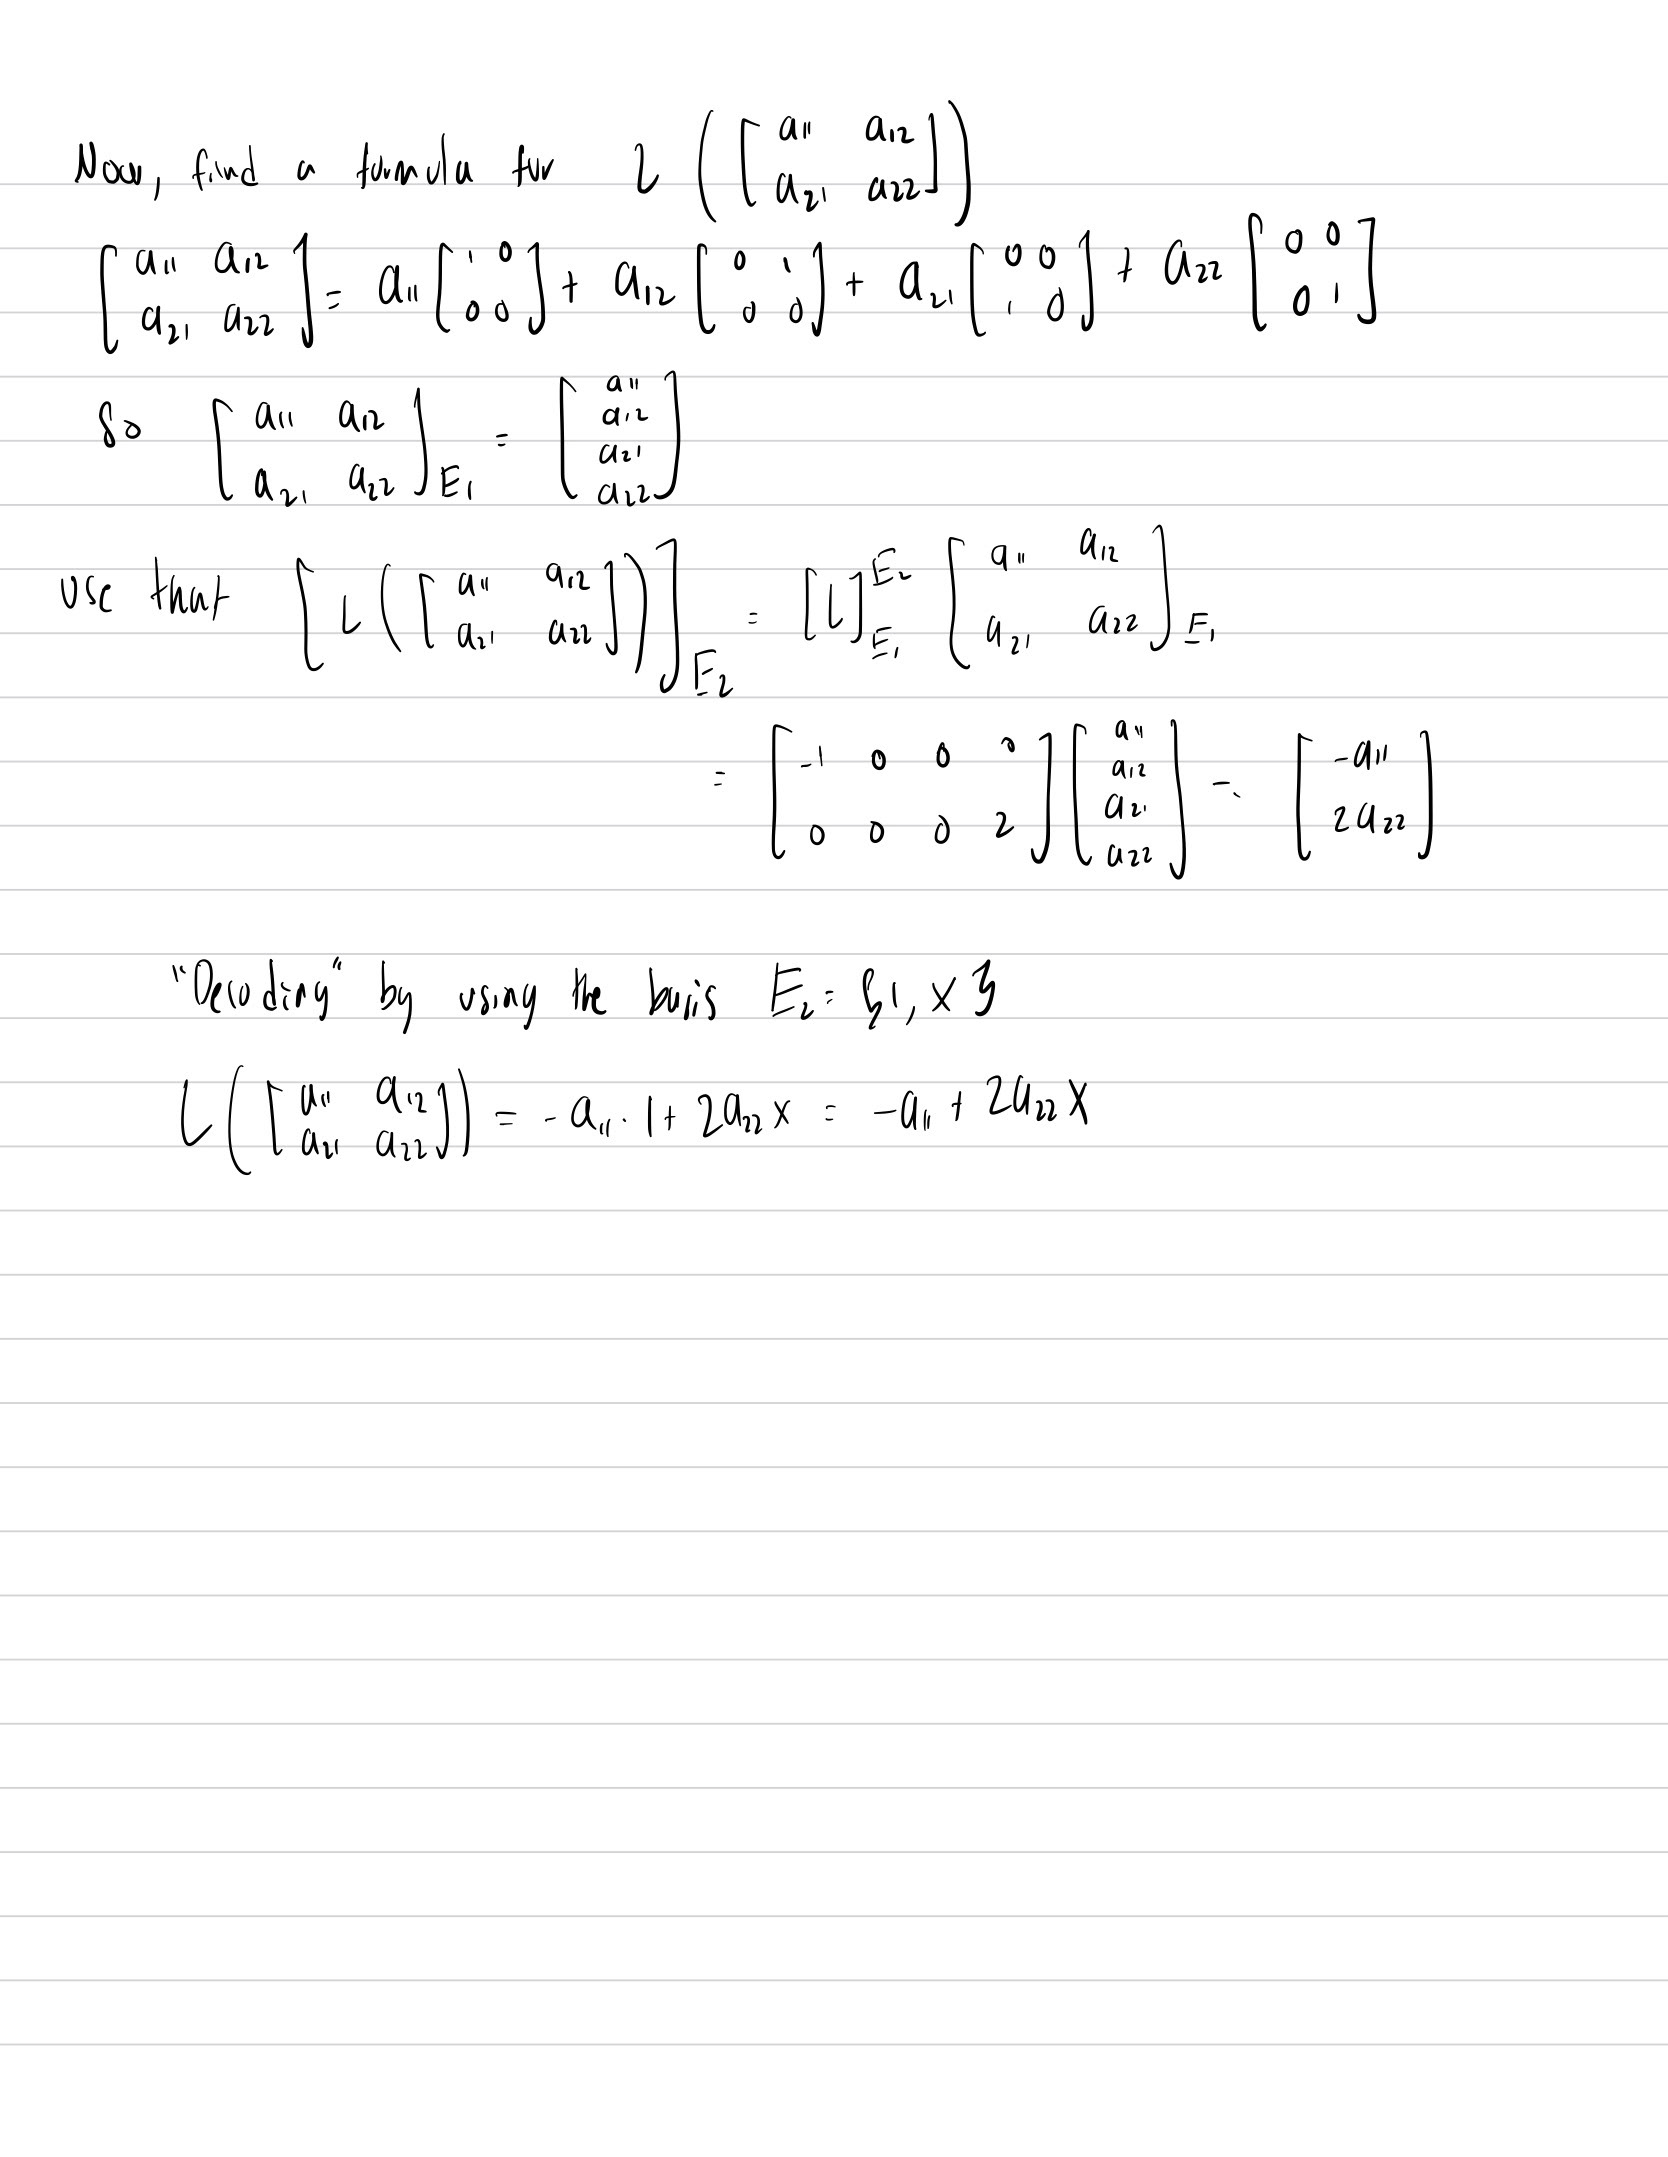 Now, find a formula for L ( [ a11 a12 ; a21 a22 ] )
[ a11 a12 ; a21 a22 ] = a11 [ 1 0 ; 0 0 ] + a12 [ 0 1 ; 0 0 ] + a21 [ 0 0 ; 1 0 ] + a22 [ 0 0 ; 0 1 ]
So [ a11 a12 ; a21 a22 ]_E1 = [ a11 ; a12 ; a21 ; a22 ]
use that [ L ( [ a11 a12 ; a21 a22 ] ) ]_E2 = [L]_E1^E2 [ a11 a12 ; a21 a22 ]_E1
= [ -1 0 0 0 ; 0 0 0 2 ] [ a11 ; a12 ; a21 ; a22 ] = [ -a11 ; 2a22 ]
"Decoding" by using the basis E2 = {1, x}
L ( [ a11 a12 ; a21 a22 ] ) = -a11 · 1 + 2a22 x = -a11 + 2a22 x